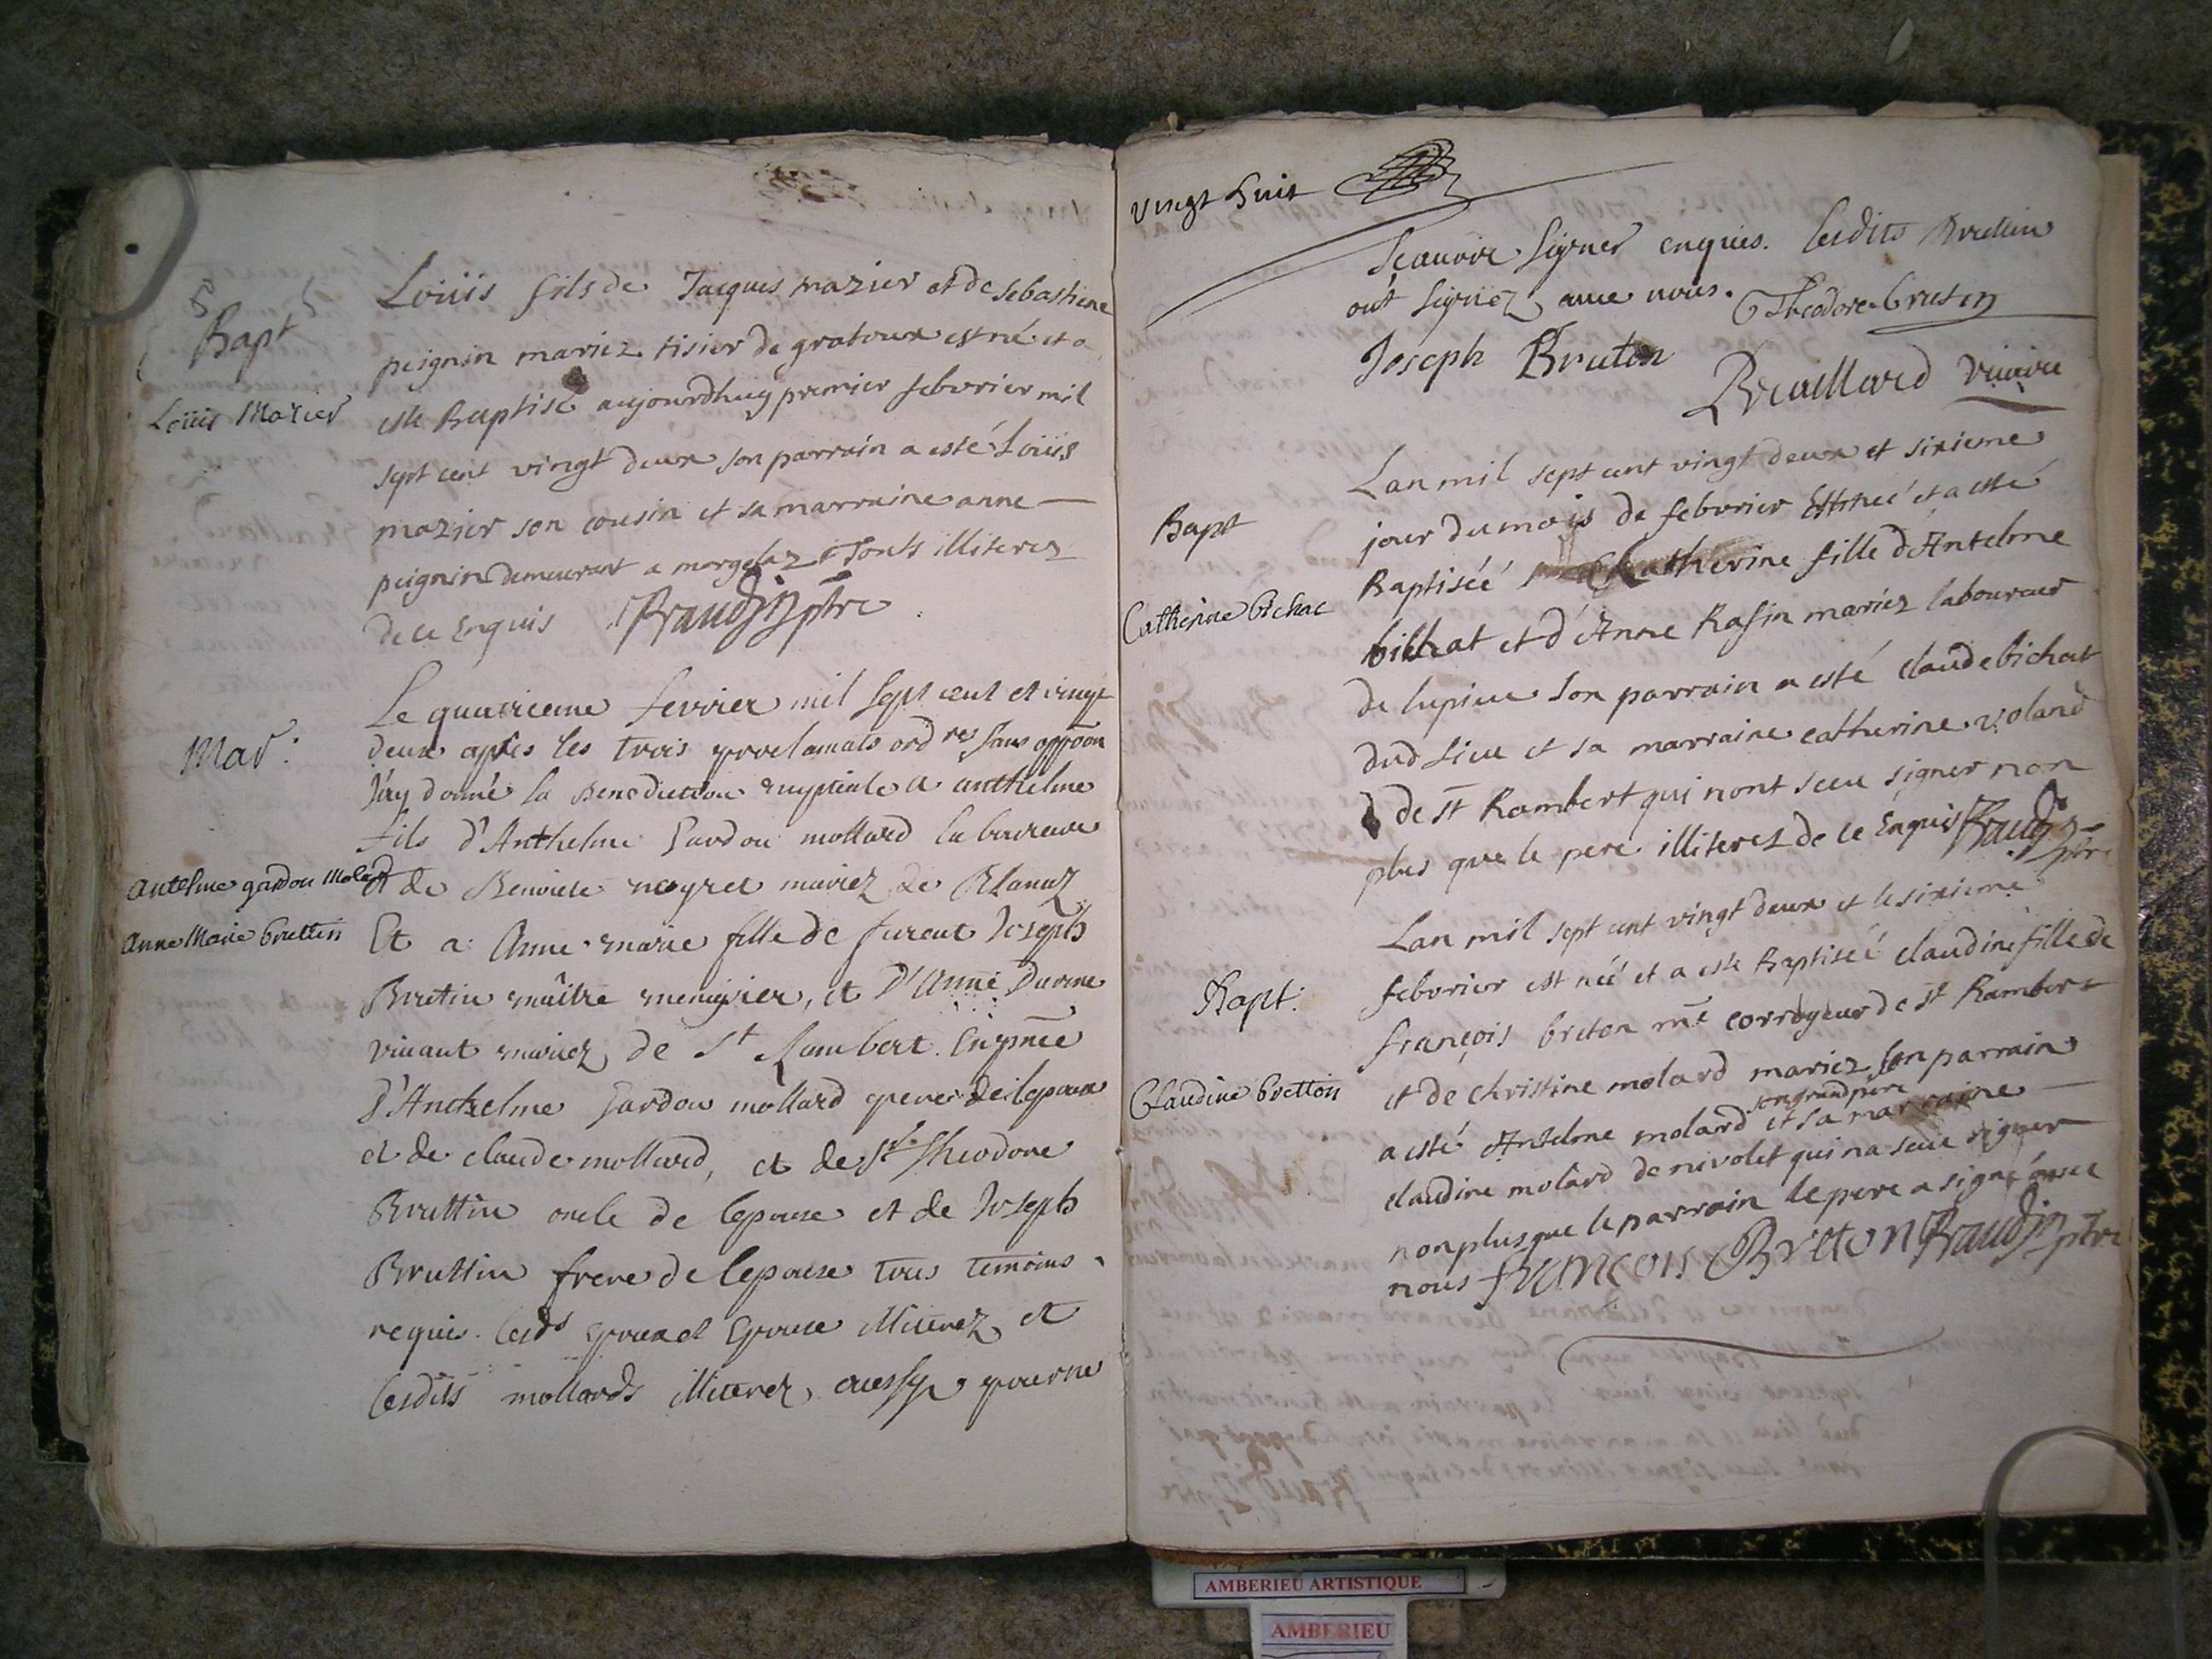 Bapt
Louis Mazier
Louis fils de Jacques mazier et de sebastiene
peignin mariez tisier de gratoux est né et a
esté Baptisé aujourdhuy premier febvrier mil
sept cent vingt deux son parrain a esté Louis
mazier son cousin et sa marraine anne
peignin demeurant a morgelaz Touts illiterez
de ce Enquis Braudin ptre
Mar:
antelme gardon Molard
anne Marie bruttin
Le quatrieme fevrier mil sept cent et vingt
deux apres les trois proclamats ordres sans oppōon
J'ay donné la Benediction nuptiale a anthelme
fils d'Anthelme Gardon mollard laboureur
et de Benoite neyret mariez de Blanaz
Et a Anne marie fille de fureut Joseph
Brutin maître menusier, et D'Anne Durine
vivant mariez de St Rambert. En pnce
D'Anthelme Gardon mollard pere de lepoux
et de claude mollard, et de Sr Theodore
Bruttin oncle de lepouse et de Joseph
Bruttin frere de lepouse tous temoins
requis. Lesds epoux et Epouse illiterez et
lesdits mollards illiterez, aussy pour ne
vingt huit
Sçauoir signer enquis. Lesdits Bruttin
ont signez auec nous. Theodore brutin
Joseph Brutin
Breaillard vicaire
Bapt
Catherine bichat
Lan mil sept cent vingt deux et sixieme
jour du mois de febvrier Est née et a esté
Baptiséé Catherine fille d'Antelme
bichat et d'Anne Rasin mariez laboureur
de lupieu son parrain a esté claude bichat
dud lieu et sa marraine catherine voland
de st Rambert qui nont sceu signer non
plus que le pere illiterez de ce Enquis Braudin
ptre
Bapt:
Claudine bretton
Lan mil sept cent vingt deux et le sixieme
febvrier est née et a esté Baptiséé claudine fille de
françois breton me corroyeur de st Rambert
et de christine molard mariez son parrain
a esté Antelme molard son grand pere et sa marraine
claudine molard de nivolet qui na sceu signer
non plus que le parrain le pere a signé avec
nous françois Breton Braudin ptre
AMBERIEU ARTISTIQUE
AMBERIEU